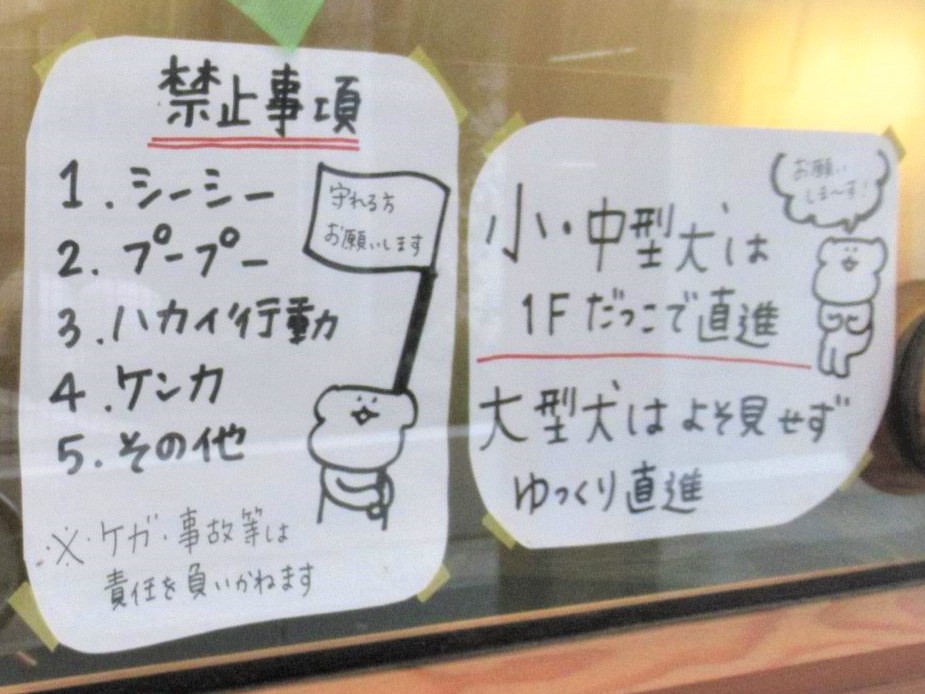 禁止事項
1.シーシー
2.プープー
3.ハカイ行動
4.ケンカ
5.その他
守れる方
お願いします
※ケガ・事故等は
責任を負いかねます
お願い
しま〜す!
小・中型犬は
1Fだっこで直進
大型犬はよそ見せず
ゆっくり直進